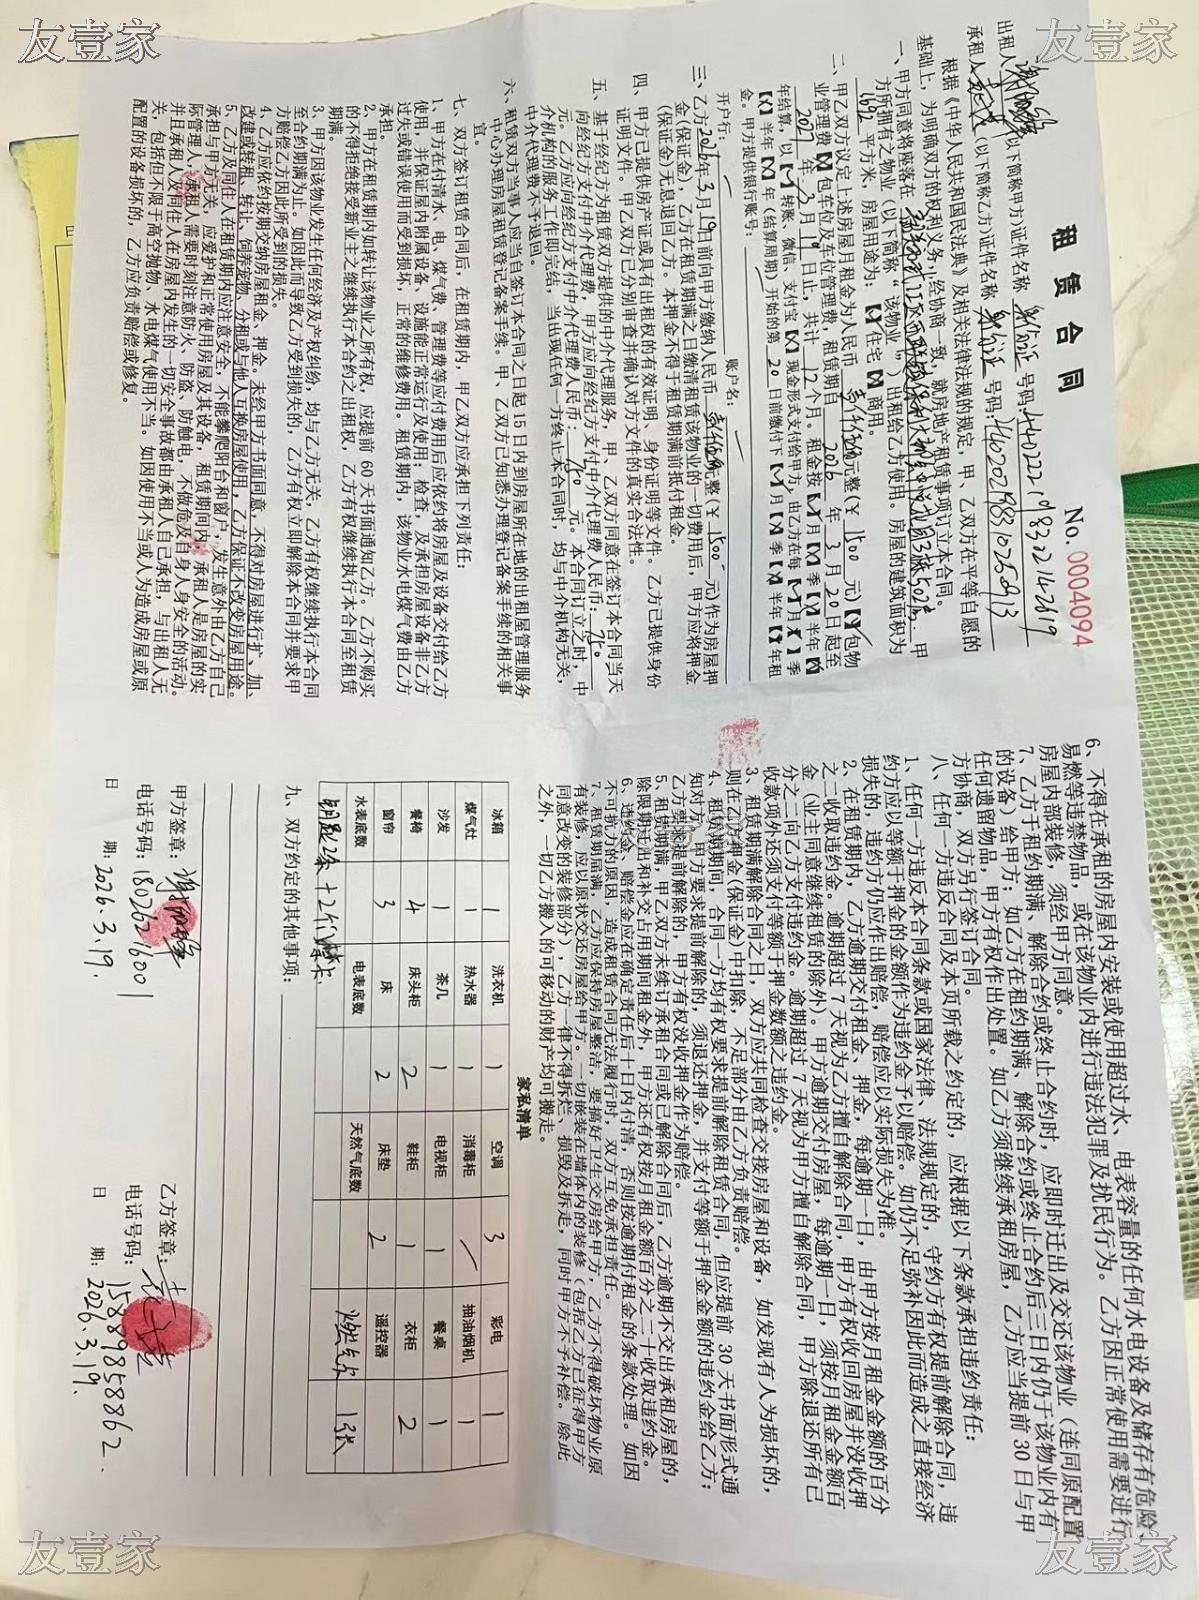 友壹家
友壹家
租 赁 合 同
No. 0004094
出租人 (以下简称甲方)证件名称 身份证 号码:
承租人 (以下简称乙方)证件名称 身份证 号码:
根据《中华人民共和国民法典》及相关法律法规的规定,甲、乙双方在平等自愿的
基础上,为明确双方的权利义务,经协商一致,就房地产租赁事项订立本合同。
一、甲方同意将座落在 甲
方所拥有之物业(以下简称“该物业”)出租给乙方使用。房屋的建筑面积为
平方米,房屋用途为:【 】住宅【 】商用。
二、甲乙双方议定上述房屋月租金为人民币 壹仟伍佰元整(¥ 1500 元)【 】包物
业管理费【 】包车位及车位管理费,租赁期自 2026 年 3 月 20 日起至
2027 年 3 月 19 日止,共计 12 个月。租金按【 】月【 】季【 】半年【 】
年结算,以【 】转账、微信、支付宝【 】现金形式支付给甲方,由乙方在每【 】月【 】季
【 】半年【 】年(结算周期)开始的第 20 日前缴付下【 】月【 】季【 】半年【 】年租
金。甲方提供银行账号:
开户行: 账户名:
三、乙方 2026年 3 月 19 日前向甲方缴纳人民币 壹仟伍佰元整(¥ 1500 元)作为房屋押
金(保证金),乙方在租赁期满之日缴清租赁该物业的一切费用后,甲方应将押金
(保证金)无息退回乙方。本押金不得于租赁期满前抵付租金。
四、甲方已提供房产证或具有出租权的有效证明、身份证明等文件。乙方已提供身份
证明文件。甲乙双方已分别审查并确认对方文件的真实合法性。
五、基于经纪方为租赁双方提供的中介代理服务,甲、乙双方同意在签订本合同当天
向经纪方支付中介代理费,甲方应向经纪方支付中介代理费人民币: 750
元。乙方应向经纪方支付中介代理费人民币: 750 元。本合同订立之时,中
介机构的服务工作即完结,当出现任何一方终止本合同时,均与中介机构无关,
中介代理费不予退回。
六、租赁双方当事人应当自签订本合同之日起15日内到房屋所在地的出租屋管理服务
中心办理房屋租赁登记备案手续。甲、乙双方已知悉办理登记备案手续的相关事
宜。
七、双方签订租赁合同后,在租赁期内,甲乙双方应承担下列责任:
1、甲方在付清水、电、煤气费、管理费等应付费用后应依约将房屋及设备交付给乙方
使用,并保证屋内附属设备、设施能正常运行及使用;检查,及承担房屋设备非乙方
过失或错误使用而受到损坏,正常的维修费用。租赁期内,该物业水电煤气费由乙方
承担。
2、甲方在租赁期内如转让该物业之所有权,应提前60天书面通知乙方。乙方不购买
的不得拒绝接受新业主之继续执行本合约之出租权,乙方有权继续执行本合同至租赁
期满。
3、甲方因该物业发生任何经济及产权纠纷,均与乙方无关,乙方有权继续执行本合同
至合约期满为止。如因此而导致乙方受到损失的,乙方有权立即解除本合同并要求甲
方赔偿乙方因此所受到的损失。
4、乙方应依约按期交纳房屋租金、押金。未经甲方书面同意,不得对房屋进行扩、加、
改建或转租、转让、饲养宠物、分租或与他人互换房屋使用,乙方保证不改变房屋用途。
5、乙方及同住人在租赁期内应注意安全,不能攀爬阳台和窗户,发生意外由乙方自己
承担与甲方无关,应爱护和正常使用房屋及其设备,租赁期间内,承租人是房屋的实
际管理人,承租人需要时刻注意防火、防盗、防触电,不做危及自身人身安全的活动。
并且承租人及同住人在房屋内发生的一切安全事故都由承租人自己承担,与出租人无
关,包括但不限于高空抛物、水电煤气使用不当。如因使用不当或人为造成房屋或原
配置的设备损坏的,乙方应负责赔偿或修复。
6、不得在承租的房屋内安装或使用超过水、电表容量的任何水电设备及储存有危险、
易燃等违禁物品,或在该物业内进行违法犯罪及扰民行为。乙方因正常使用需要进行
房屋内部装修,须经甲方同意。
7、乙方于租约期满、解除合约或终止合约时,应即时迁出及交还该物业(连同原配置
的设备)给甲方;如乙方在租约期满、解除合约或终止合约后三日内仍于该物业内有
任何遗留物品,甲方有权作出处置。如乙方须继续承租房屋,乙方应当提前30日与甲
方协商,双方另行签订合同。
八、任何一方违反合同及本页所载之约定的,应根据以下条款承担违约责任:
1、任何一方违反本合同条款或国家法律、法规规定的,守约方有权提前解除合同,违
约方应以等额于押金的金额作为违约金予以赔偿。如仍不足弥补因此而造成之直接经济
损失的,违约方仍应作出赔偿,赔偿应以实际损失为准。
2、在租赁期内,乙方逾期交付租金、押金,每逾期一日,由甲方按月租金金额的百分
之二收取违约金。逾期超过7天视为乙方擅自解除合同,甲方有权收回房屋并没收押
金(业主同意继续租赁的除外)。甲方逾期交付房屋,每逾期一日,须按月租金金额百
分之二向乙方支付违约金。逾期超过7天视为甲方擅自解除合同,甲方除退还所有已
收款项外还须支付等额于押金数额之违约金。
3、租赁期满解除合同之日,双方应共同检查交接房屋和设备,如发现有人为损坏的,
则在乙方押金(保证金)中扣除,不足部分由乙方负责赔偿。
4、租赁期期间,合同一方均有权要求提前解除租赁合同,但应提前30天书面形式通
知对方,甲方要求提前解除的,须退还押金,并支付等额于押金金额的违约金给乙方;
乙方要求提前解除的,甲方有权没收押金作为赔偿。
5、租赁期满,甲乙双方未续订承租合同或已解除合同后,乙方逾期不交出承租房屋的,
除限期迁出和补交占用期间租金外,甲方还有权按月租金额百分之二十收取违约金。
6、违约金、赔偿金应在确定责任后十日内付清,否则按逾期付租金的条款处理。如因
不可抗力的原因,造成租赁合同无法履行时,双方互免承担责任。
7、租赁期届满,乙方应保持房屋整洁,要搞好卫生交房给甲方,乙方不得破坏物业原
有装修,应以原状交还房屋给甲方。一切嵌装在墙体内的装修(包括乙方已征得甲方
同意改变的装修部分),乙方一律不得拆烂、损毁及拆走,同时甲方不予补偿。除此
之外,一切乙方搬入的可移动的财产均可搬走。
家私清单
冰箱 1 洗衣机 1 空调 3 彩电 1
煤气灶 1 热水器 1 消毒柜 / 抽油烟机 1
沙发 1 茶几 1 电视柜 1 餐桌 1
餐椅 4 床头柜 2 鞋柜 1 衣柜 2
窗帘 3 床 2 床垫 2 遥控器
水表底数 电表底数 天然气底数
钥匙2条+2个门禁卡 燃气卡 1张
九、双方约定的其他事项:
甲方签章: 乙方签章:
电话号码:18026216001 电话号码:15889858862
日 期:2026.3.19. 日 期:2026.3.19.
友壹家
友壹家